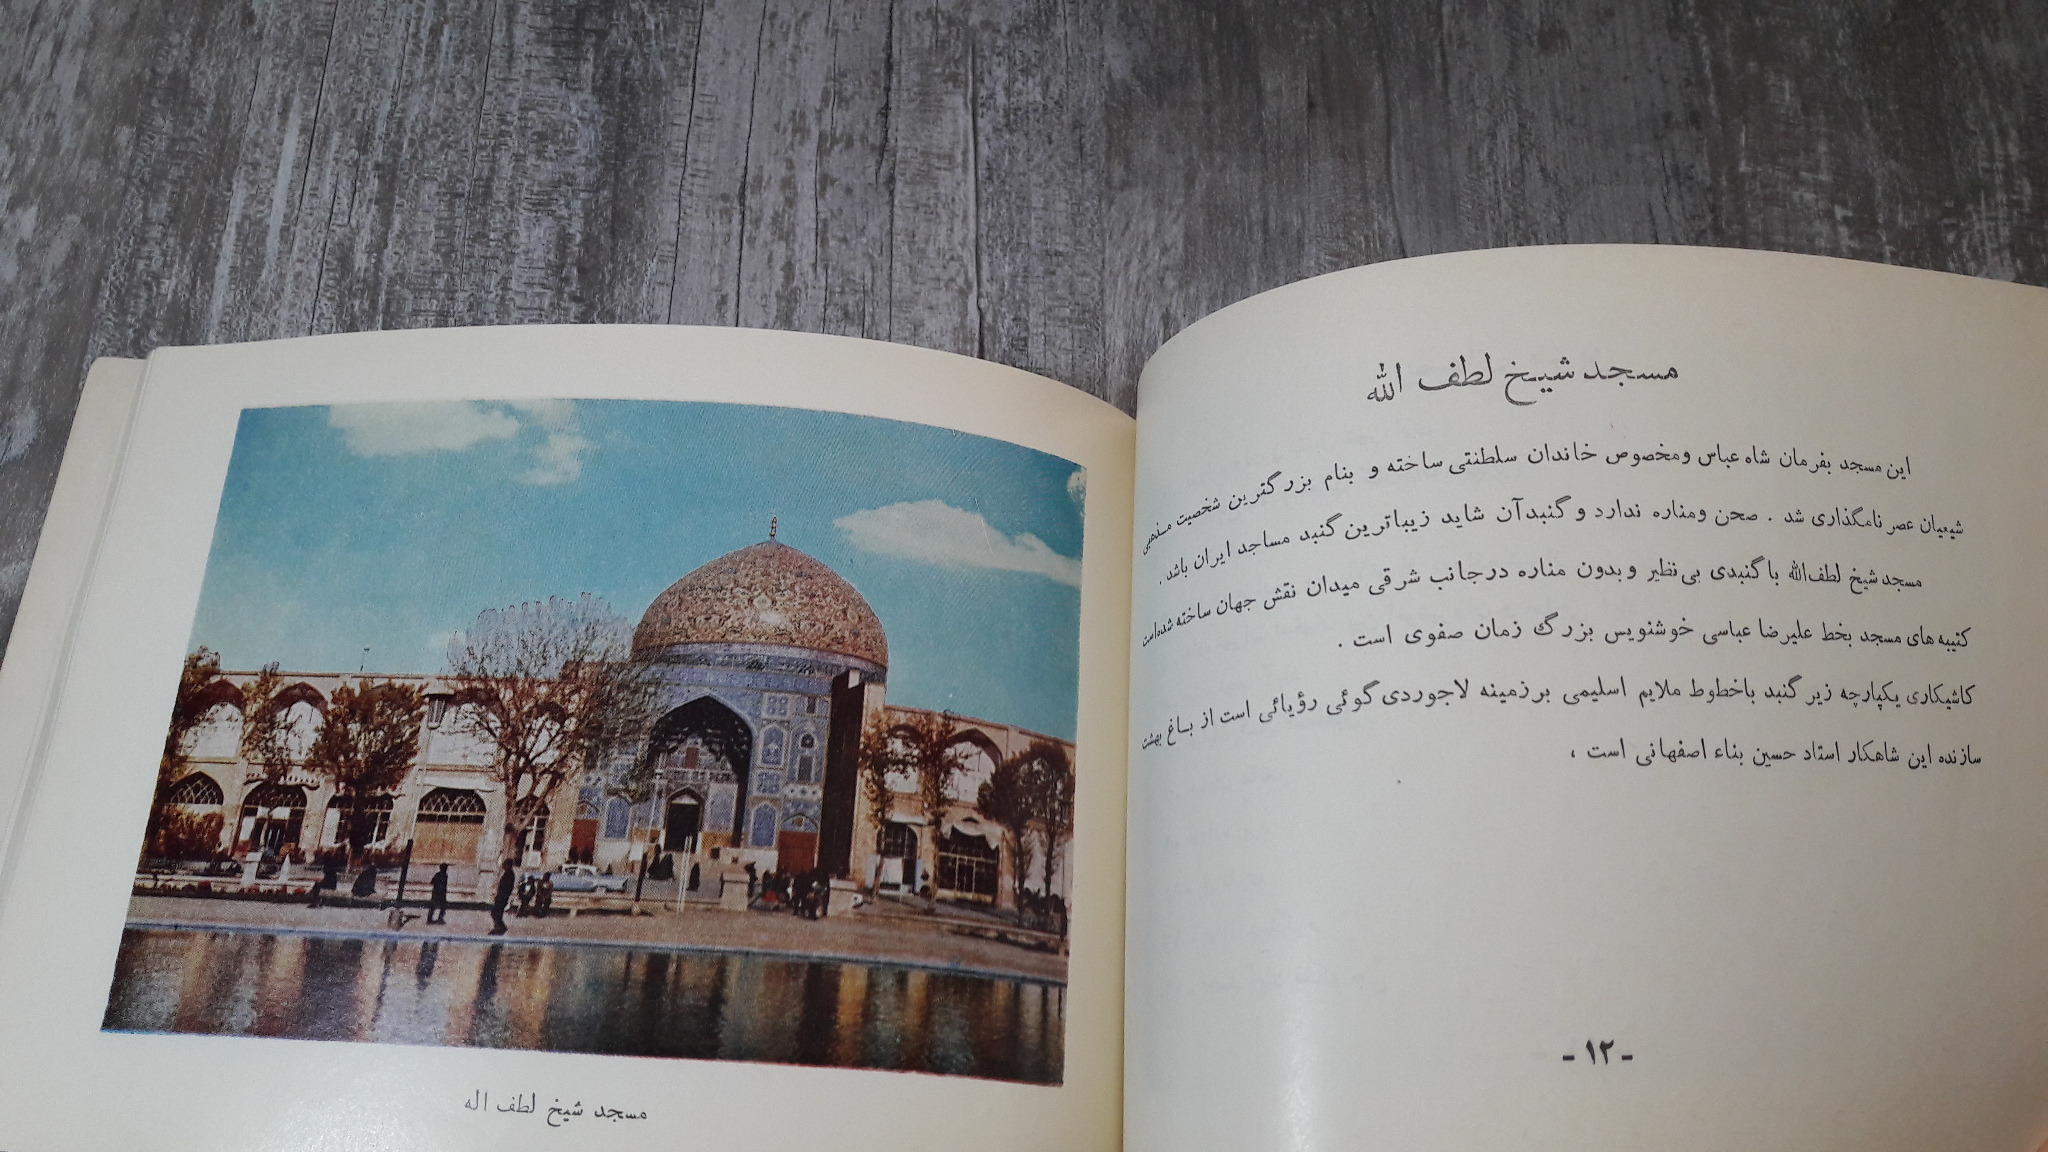 مسجد شیخ لطف الله
این مسجد بفرمان شاه عباس ومخصوص خاندان سلطنتی ساخته و بنام بزرگترین شخصیت مذهبی
شیعیان عصر نامگذاری شد . صحن ومناره ندارد و گنبدآن شاید زیباترین گنبد مساجد ایران باشد .
مسجد شیخ لطف‌الله باگنبدی بی‌نظیر و بدون مناره درجانب شرقی میدان نقش جهان ساخته شده‌است
کتیبه های مسجد بخط علیرضا عباسی خوشنویس بزرگ زمان صفوی است .
کاشیکاری یکپارچه زیر گنبد باخطوط ملایم اسلیمی برزمینه لاجوردی گوئی رؤیائی است از باغ بهشت
سازنده این شاهکار استاد حسین بناء اصفهانی است ،
- ۱۲ -
مسجد شیخ لطف اله